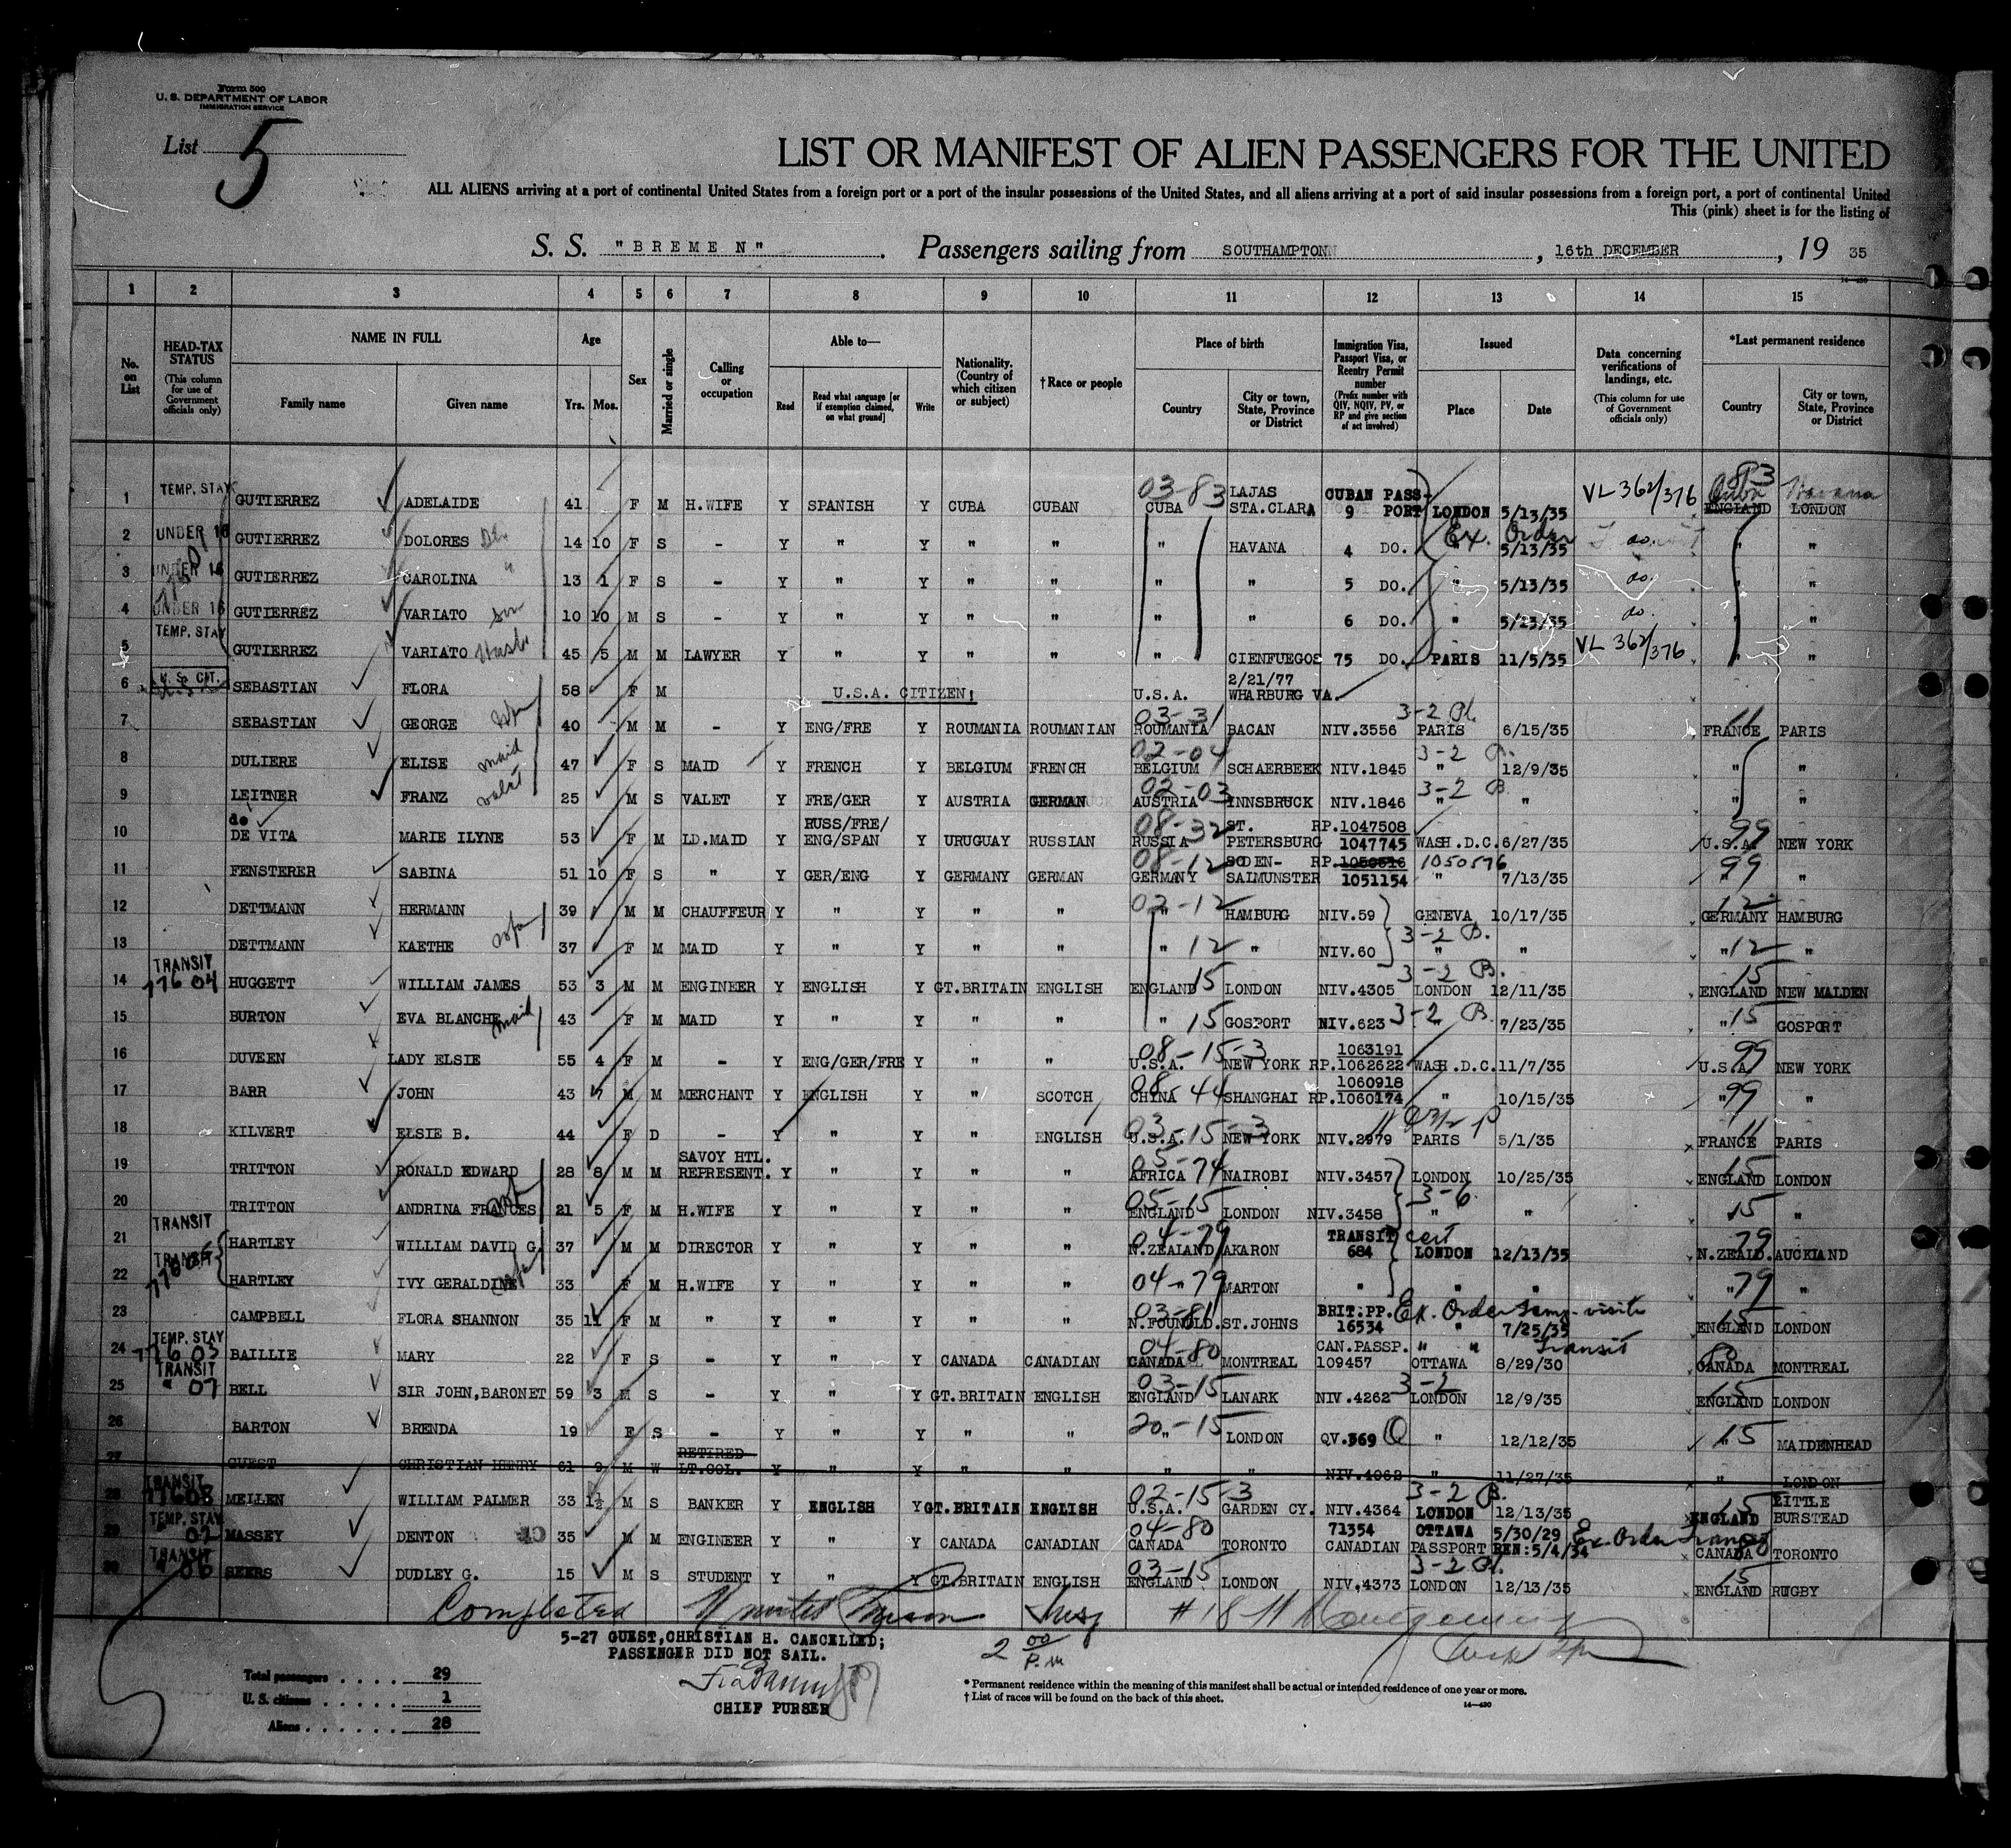 Form 500
U. S. DEPARTMENT OF LABOR
IMMIGRATION SERVICE
List 5
LIST OR MANIFEST OF ALIEN PASSENGERS FOR THE UNITED
ALL ALIENS arriving at a port of continental United States from a foreign port or a port of the insular possessions of the United States, and all aliens arriving at a port of said insular possessions from a foreign port, a port of continental United
This (pink) sheet is for the listing of
S. S. "BREMEN" . Passengers sailing from SOUTHAMPTON , 16th DECEMBER , 19 35
1 2 3 4 5 6 7 8 9 10 11 12 13 14 15
No. on List
HEAD-TAX STATUS (This column for use of Government officials only)
NAME IN FULL Family name Given name
Age Yrs. Mos.
Sex
Married or single
Calling or occupation
Able to— Read Read what language [or if exemption claimed, on what ground] Write
Nationality. (Country of which citizen or subject)
†Race or people
Place of birth Country City or town, State, Province or District
Immigration Visa, Passport Visa, or Reentry Permit number (Prefix number with QIV, NQIV, PV, or RP and give section of act involved)
Issued Place Date
Data concerning verifications of landings, etc. (This column for use of Government officials only)
*Last permanent residence Country City or town, State, Province or District
1 TEMP. STAY GUTIERREZ ADELAIDE 41 F M H.WIFE Y SPANISH Y CUBA CUBAN 03-83 CUBA LAJAS STA.CLARA CUBAN PASSPORT 9 LONDON 5/13/35 VL 362/376 083 Cuba Havana ENGLAND LONDON
2 UNDER 16 GUTIERREZ DOLORES 14 10 F S - Y " Y " " " HAVANA 4 DO. Ex. Order 5/13/35 do. " "
3 UNDER 16 GUTIERREZ CAROLINA " 13 1 F S - Y " Y " " " " 5 DO. " 5/13/35 do. " "
4 UNDER 16 GUTIERREZ VARIATO son 10 10 M S - Y " Y " " " " 6 DO. " 5/23/35 do. " "
5 TEMP. STAY GUTIERREZ VARIATO Husb. 45 5 M M LAWYER Y " Y " " " CIENFUEGOS 75 DO. PARIS 11/5/35 VL 362/376 " "
6 U. S. CIT. SEBASTIAN FLORA 58 F M U.S.A. CITIZEN! U.S.A. 2/21/77 WHARBURG VA.
7 SEBASTIAN GEORGE 40 M M - Y ENG/FRE Y ROUMANIA ROUMANIAN 03-31 ROUMANIA BACAN NIV.3556 3-2 Pl. PARIS 6/15/35 11 FRANCE PARIS
8 DULIERE ELISE maid 47 F S MAID Y FRENCH Y BELGIUM FRENCH 02-04 BELGIUM SCHAERBEEK NIV.1845 3-2 B. " 12/9/35 " "
9 LEITNER FRANZ valet 25 M S VALET Y FRE/GER Y AUSTRIA GERMAN 02-03 AUSTRIA INNSBRUCK NIV.1846 3-2 B. " " " "
10 de DE VITA MARIE ILYNE 53 F M LD.MAID Y RUSS/FRE/ENG/SPAN Y URUGUAY RUSSIAN 08-32 RUSSIA ST. PETERSBURG RP.1047508 1047745 WASH.D.C. 6/27/35 99 U.S.A. NEW YORK
11 FENSTERER SABINA 51 10 F S " Y GER/ENG Y GERMANY GERMAN 08-12 GERMANY SODEN-SALMUNSTER RP.1050516 1050576 1051154 " 7/13/35 99 " "
12 DETTMANN HERMANN 39 M M CHAUFFEUR Y " Y " " 02-12 " HAMBURG NIV.59 GENEVA 10/17/35 12 GERMANY HAMBURG
13 DETTMANN KAETHE wfe 37 F M MAID Y " Y " " " 12 " NIV.60 3-2 B. " " " 12 "
14 TRANSIT 77604 HUGGETT WILLIAM JAMES 53 3 M M ENGINEER Y ENGLISH Y GT.BRITAIN ENGLISH ENGLAND 15 LONDON NIV.4305 3-2 B. LONDON 12/11/35 15 ENGLAND NEW MALDEN
15 BURTON EVA BLANCHE maid 43 F M MAID Y " Y " " " 15 GOSPORT NIV.623 3-2 B. " 7/23/35 " 15 GOSPORT
16 DUVEEN LADY ELSIE 55 4 F M - Y ENG/GER/FRE Y " " 08-15-3 U.S.A. NEW YORK 1063191 RP.1062622 WASH.D.C. 11/7/35 99 U.S.A. NEW YORK
17 BARR JOHN 43 7 M M MERCHANT Y ENGLISH Y " SCOTCH 08-44 CHINA SHANGHAI 1060918 RP.1060174 " 10/15/35 " 99 "
18 KILVERT ELSIE B. 44 F D - Y " Y " ENGLISH 03-15-3 U.S.A. NEW YORK NIV.2979 PARIS 5/1/35 11 FRANCE PARIS
19 TRITTON RONALD EDWARD 28 8 M M SAVOY HTL. REPRESENT. Y " Y " " 05-74 AFRICA NAIROBI NIV.3457 LONDON 10/25/35 15 ENGLAND LONDON
20 TRITTON ANDRINA FRANCES 21 5 F M H.WIFE Y " Y " " 05-15 ENGLAND LONDON NIV.3458 3-6. " " 15 "
21 TRANSIT HARTLEY WILLIAM DAVID G. 37 M M DIRECTOR Y " Y " " 04-79 N.ZEALAND AKARON TRANSIT cert 684 LONDON 12/13/35 79 N.ZEALD. AUCKLAND
22 TRANSIT HARTLEY IVY GERALDINE 33 F M H.WIFE Y " Y " " 04-"79 MARTON " " " " 79 "
23 CAMPBELL FLORA SHANNON 35 11 F M " Y " Y " " 03-81 N.FOUNDLD. ST.JOHNS BRIT.PP. 16534 Ex. Order temp. visit " 7/25/35 15 ENGLAND LONDON
24 TEMP. STAY 77603 BAILLIE MARY 22 F S - Y " Y CANADA CANADIAN 04-80 CANADA MONTREAL CAN.PASSP. 109457 " " Transit OTTAWA 8/29/30 80 CANADA MONTREAL
25 TRANSIT " 07 BELL SIR JOHN,BARONET 59 3 M S - Y " Y GT.BRITAIN ENGLISH 03-15 ENGLAND LANARK NIV.4262 3-2 LONDON 12/9/35 15 ENGLAND LONDON
26 BARTON BRENDA 19 F S - Y " Y " " 20-15 " LONDON QV.369 Q " 12/12/35 " 15 MAIDENHEAD
27 GUEST CHRISTIAN HENRY 61 9 M W RETIRED LT.COL. Y " Y " " " " NIV.4062 " 11/27/35 " LONDON
28 TRANSIT 77608 MELLEN WILLIAM PALMER 33 1½ M S BANKER Y ENGLISH Y GT.BRITAIN ENGLISH 02-15-3 U.S.A. GARDEN CY. NIV.4364 3-2 B. LONDON 12/13/35 15 ENGLAND LITTLE BURSTEAD
29 TEMP. STAY " 02 MASSEY DENTON 35 M M ENGINEER Y " Y CANADA CANADIAN 04-80 CANADA TORONTO 71354 CANADIAN PASSPORT OTTAWA 5/30/29 REN:5/4/34 Ex. Order Transit 80 CANADA TORONTO
30 TRANSIT " 06 SEERS DUDLEY G. 15 M S STUDENT Y " Y GT.BRITAIN ENGLISH 03-15 ENGLAND LONDON NIV.4373 3-2 Pl. LONDON 12/13/35 15 ENGLAND RUGBY
Completed Insp # 18 H Montgomery
5-27 GUEST,CHRISTIAN H. CANCELLED;
PASSENGER DID NOT SAIL.
2 00 P.M
CHIEF PURSER
Total passengers . . . . 29
U. S. citizens . . . . . 1
Aliens . . . . . . 28
* Permanent residence within the meaning of this manifest shall be actual or intended residence of one year or more.
† List of races will be found on the back of this sheet.
14—430